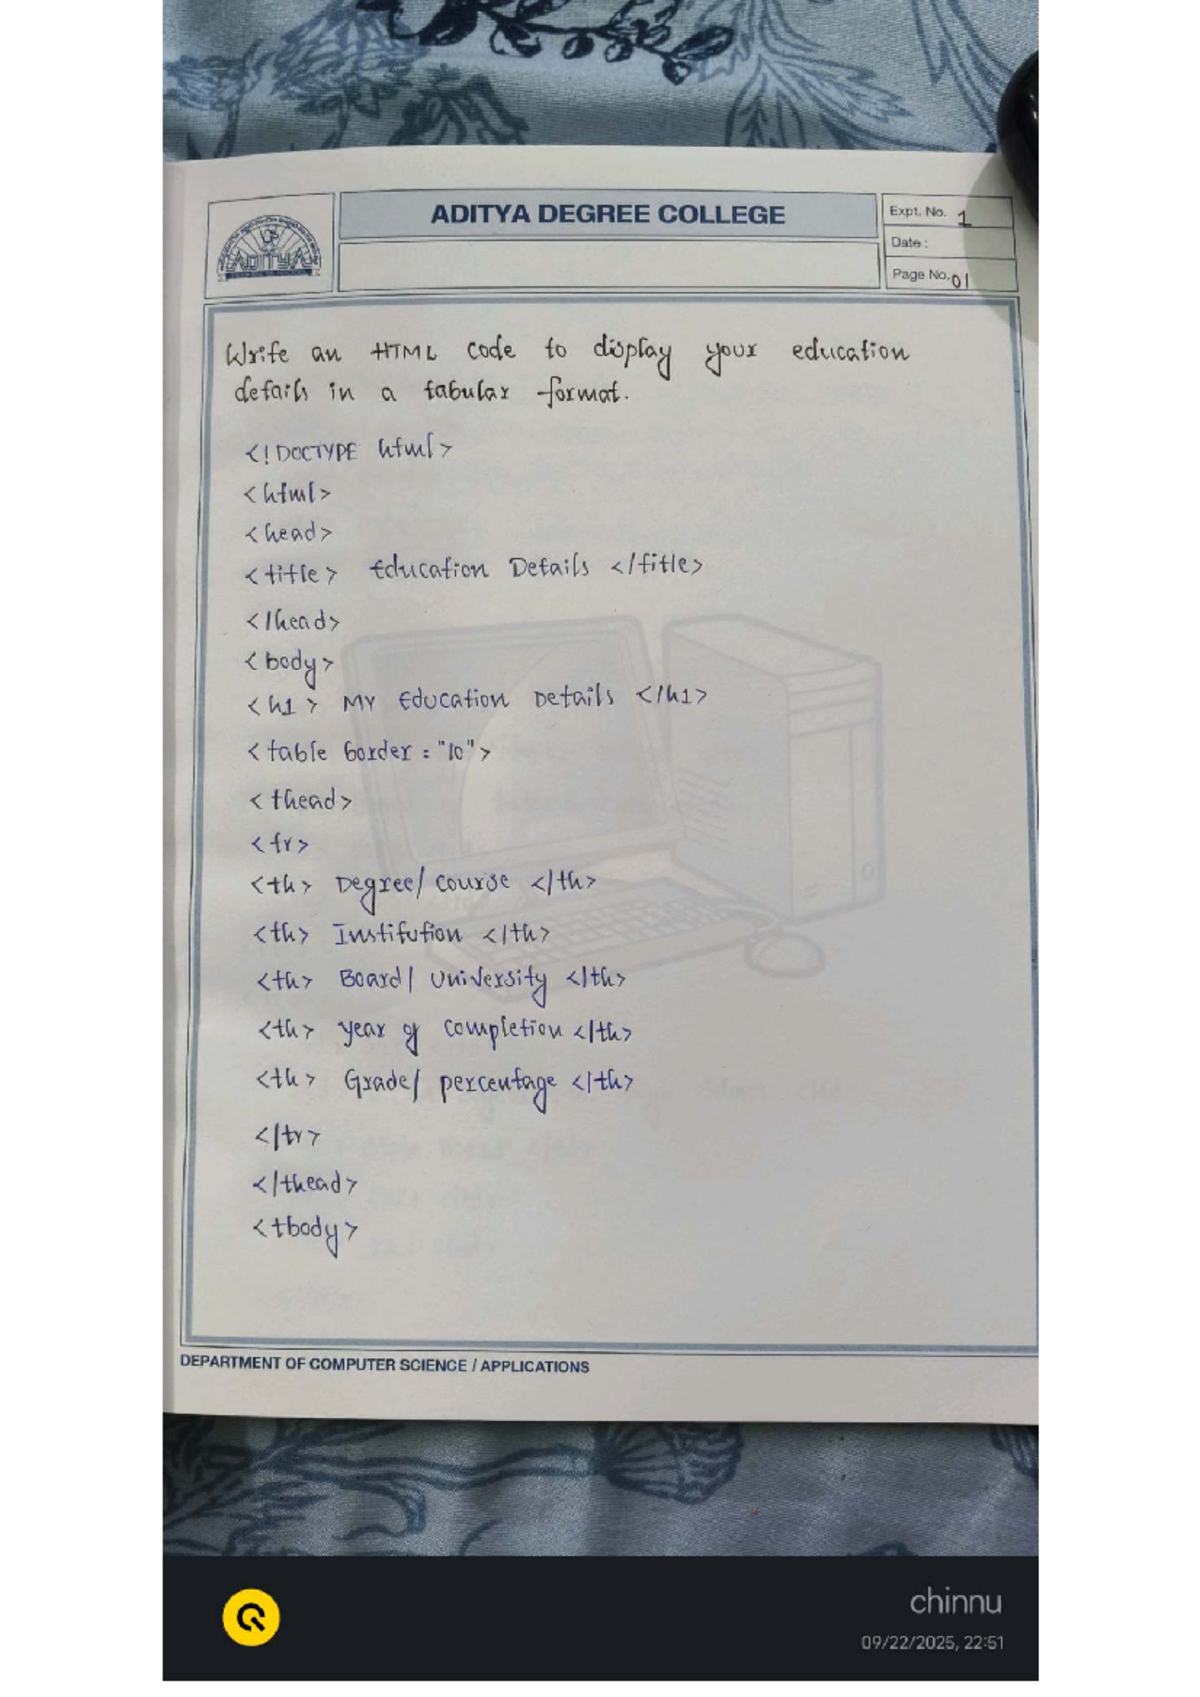 ADITYA DEGREE COLLEGE
ADITYA
Expt. No. 1
Date :
Page No. 01
Write an HTML code to display your education
details in a tabular format.
<!DOCTYPE html>
<html>
<head>
<title> Education Details </title>
</head>
<body>
<h1> MY Education Details </h1>
<table border = "10">
<thead>
<tr>
<th> Degree/ course </th>
<th> Institution </th>
<th> Board/ University </th>
<th> year of completion </th>
<th> Grade/ percentage </th>
</tr>
</thead>
<tbody>
DEPARTMENT OF COMPUTER SCIENCE / APPLICATIONS
chinnu
09/22/2025, 22:51